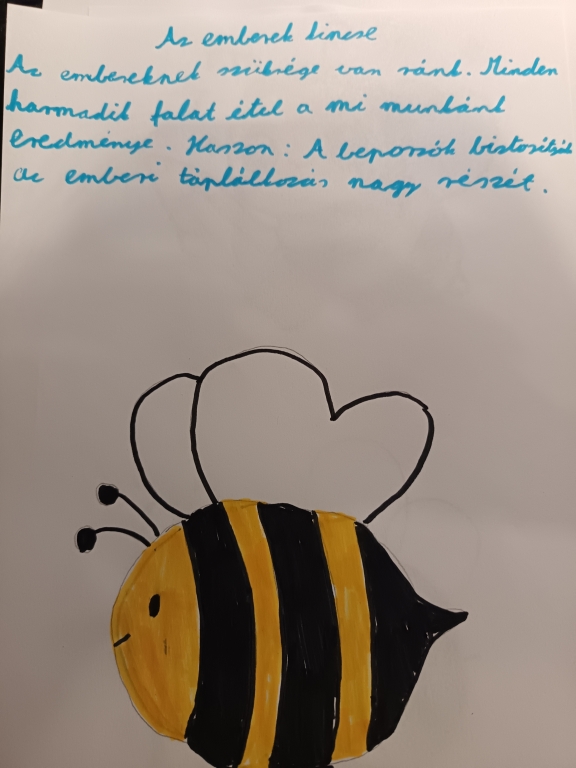 Az emberek kincse
Az embereknek szüksége van ránk. Minden
harmadik falat étel a mi munkánk
eredménye. Haszon: A beporzók biztosítják
az emberi táplálkozás nagy részét.